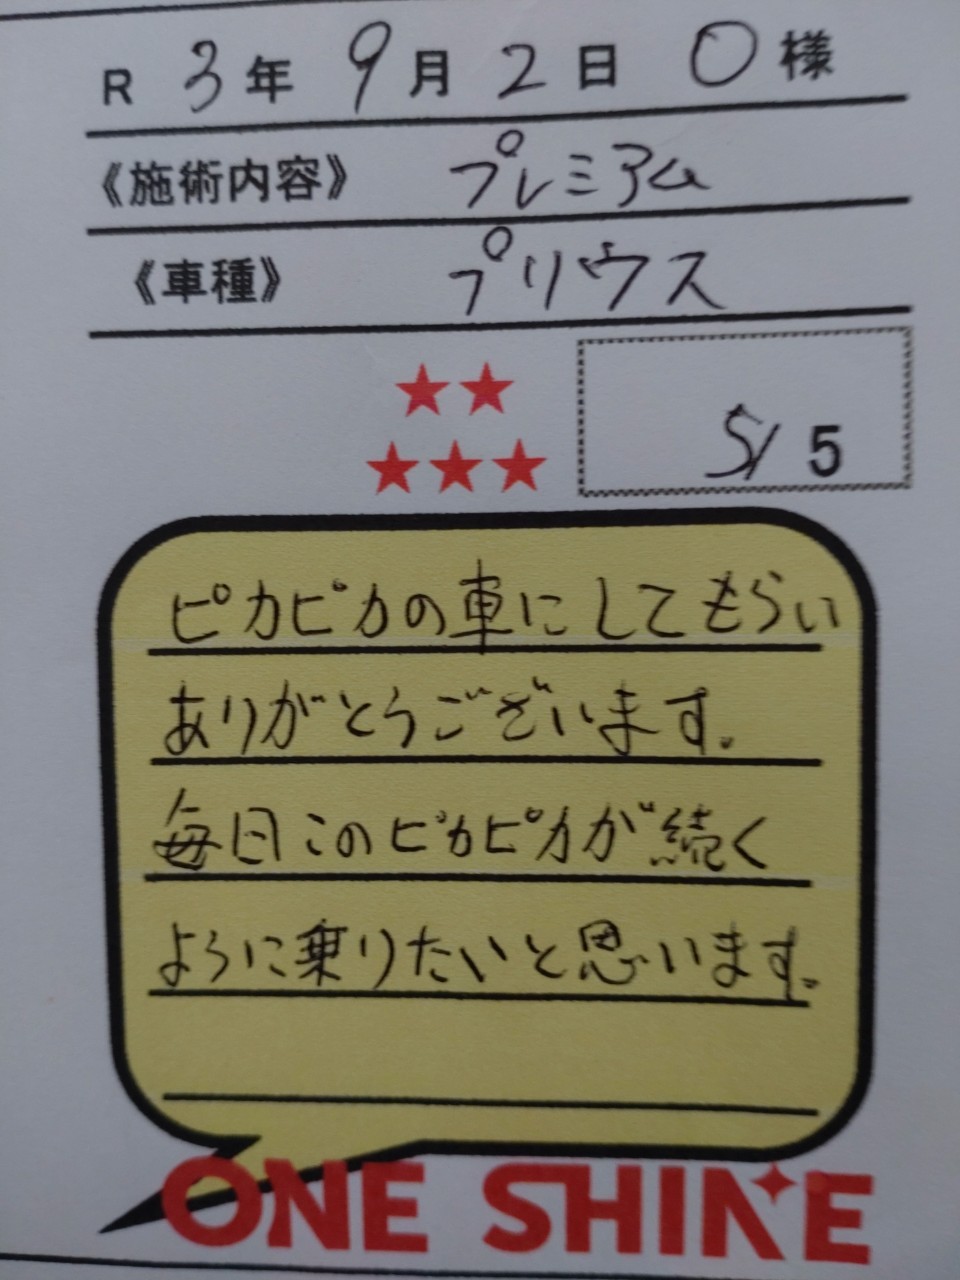 R 3年 9月 2日 O様
《施術内容》 プレミアム
《車種》 プリウス
★★
★★★
5/5
ピカピカの車にしてもらい
ありがとうございます。
毎日このピカピカが続く
ように乗りたいと思います。
ONE SHINE